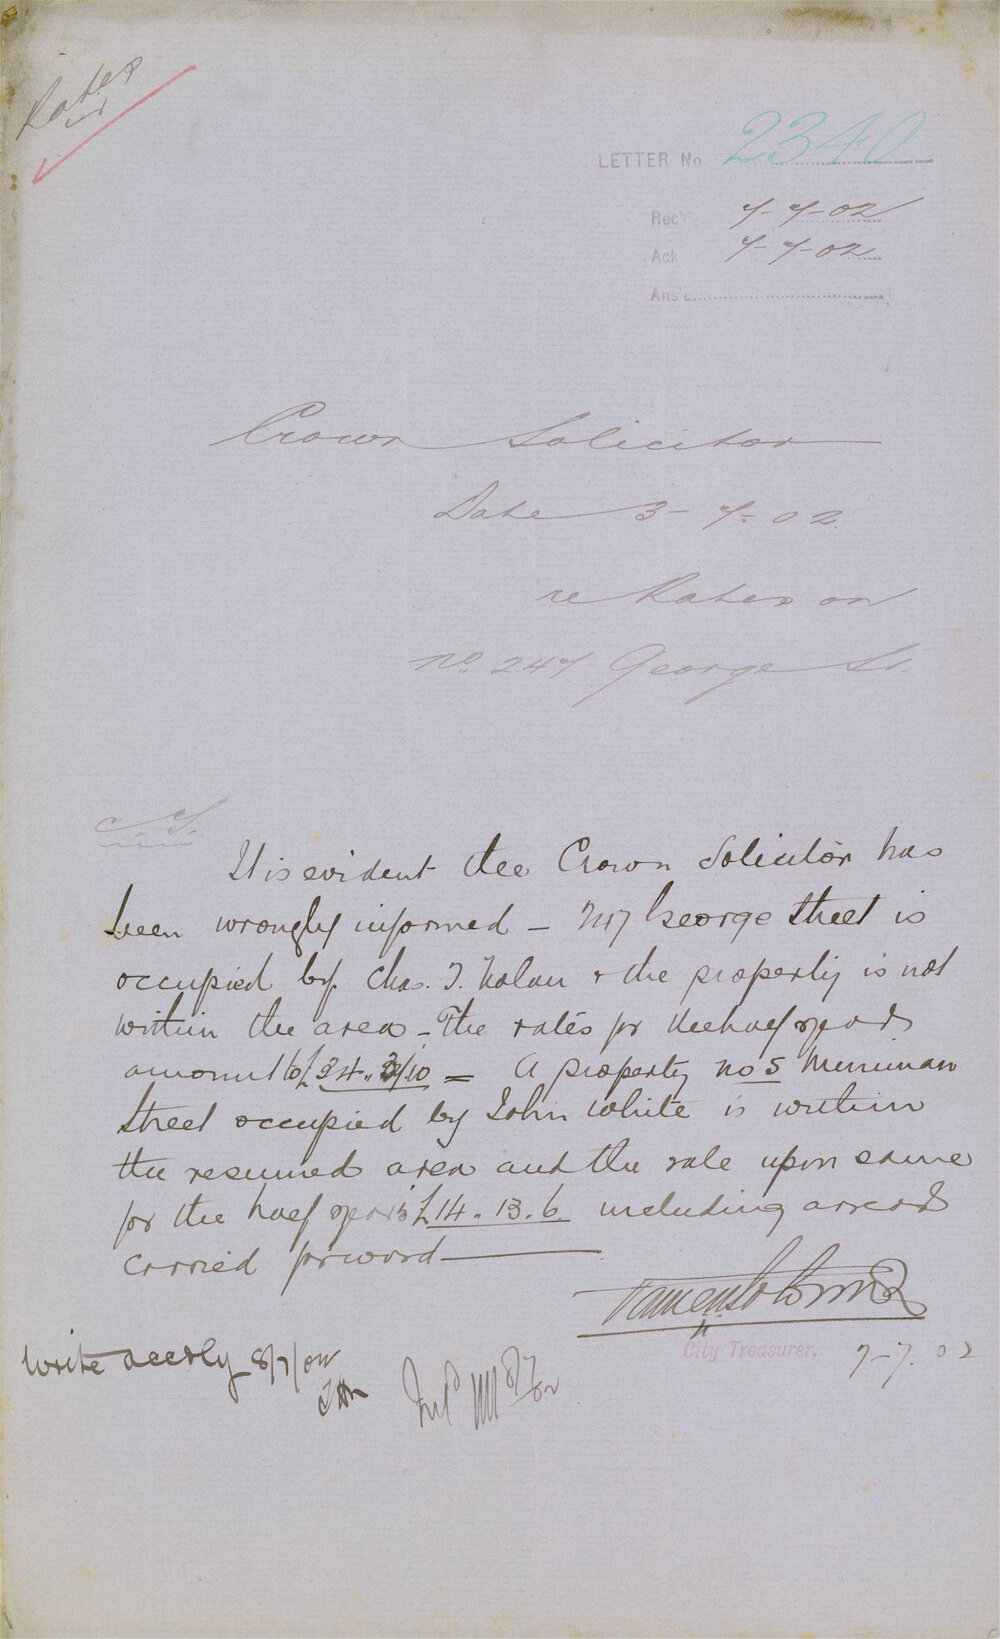 Rates
LETTER No 2340
Rec'd 7-7-02
Ack 7-7-02
Ans'd
Crown Solicitor
Date 3-7-02.
re Rates on
no. 247 George St.
C T.
It is evident the Crown Solicitor has
been wrongly informed - 247 George Street is
occupied by Chas. J. Nolan & the property is not
within the area - The rates for the half year
amount to £34..3/10 = A property no 5 Merriman
Street occupied by John White is within
the resumed area and the rate upon same
for the half year is £14.13.6 including arrears
carried forward
City Treasurer. 7-7.02
Write accdly 8/7/02